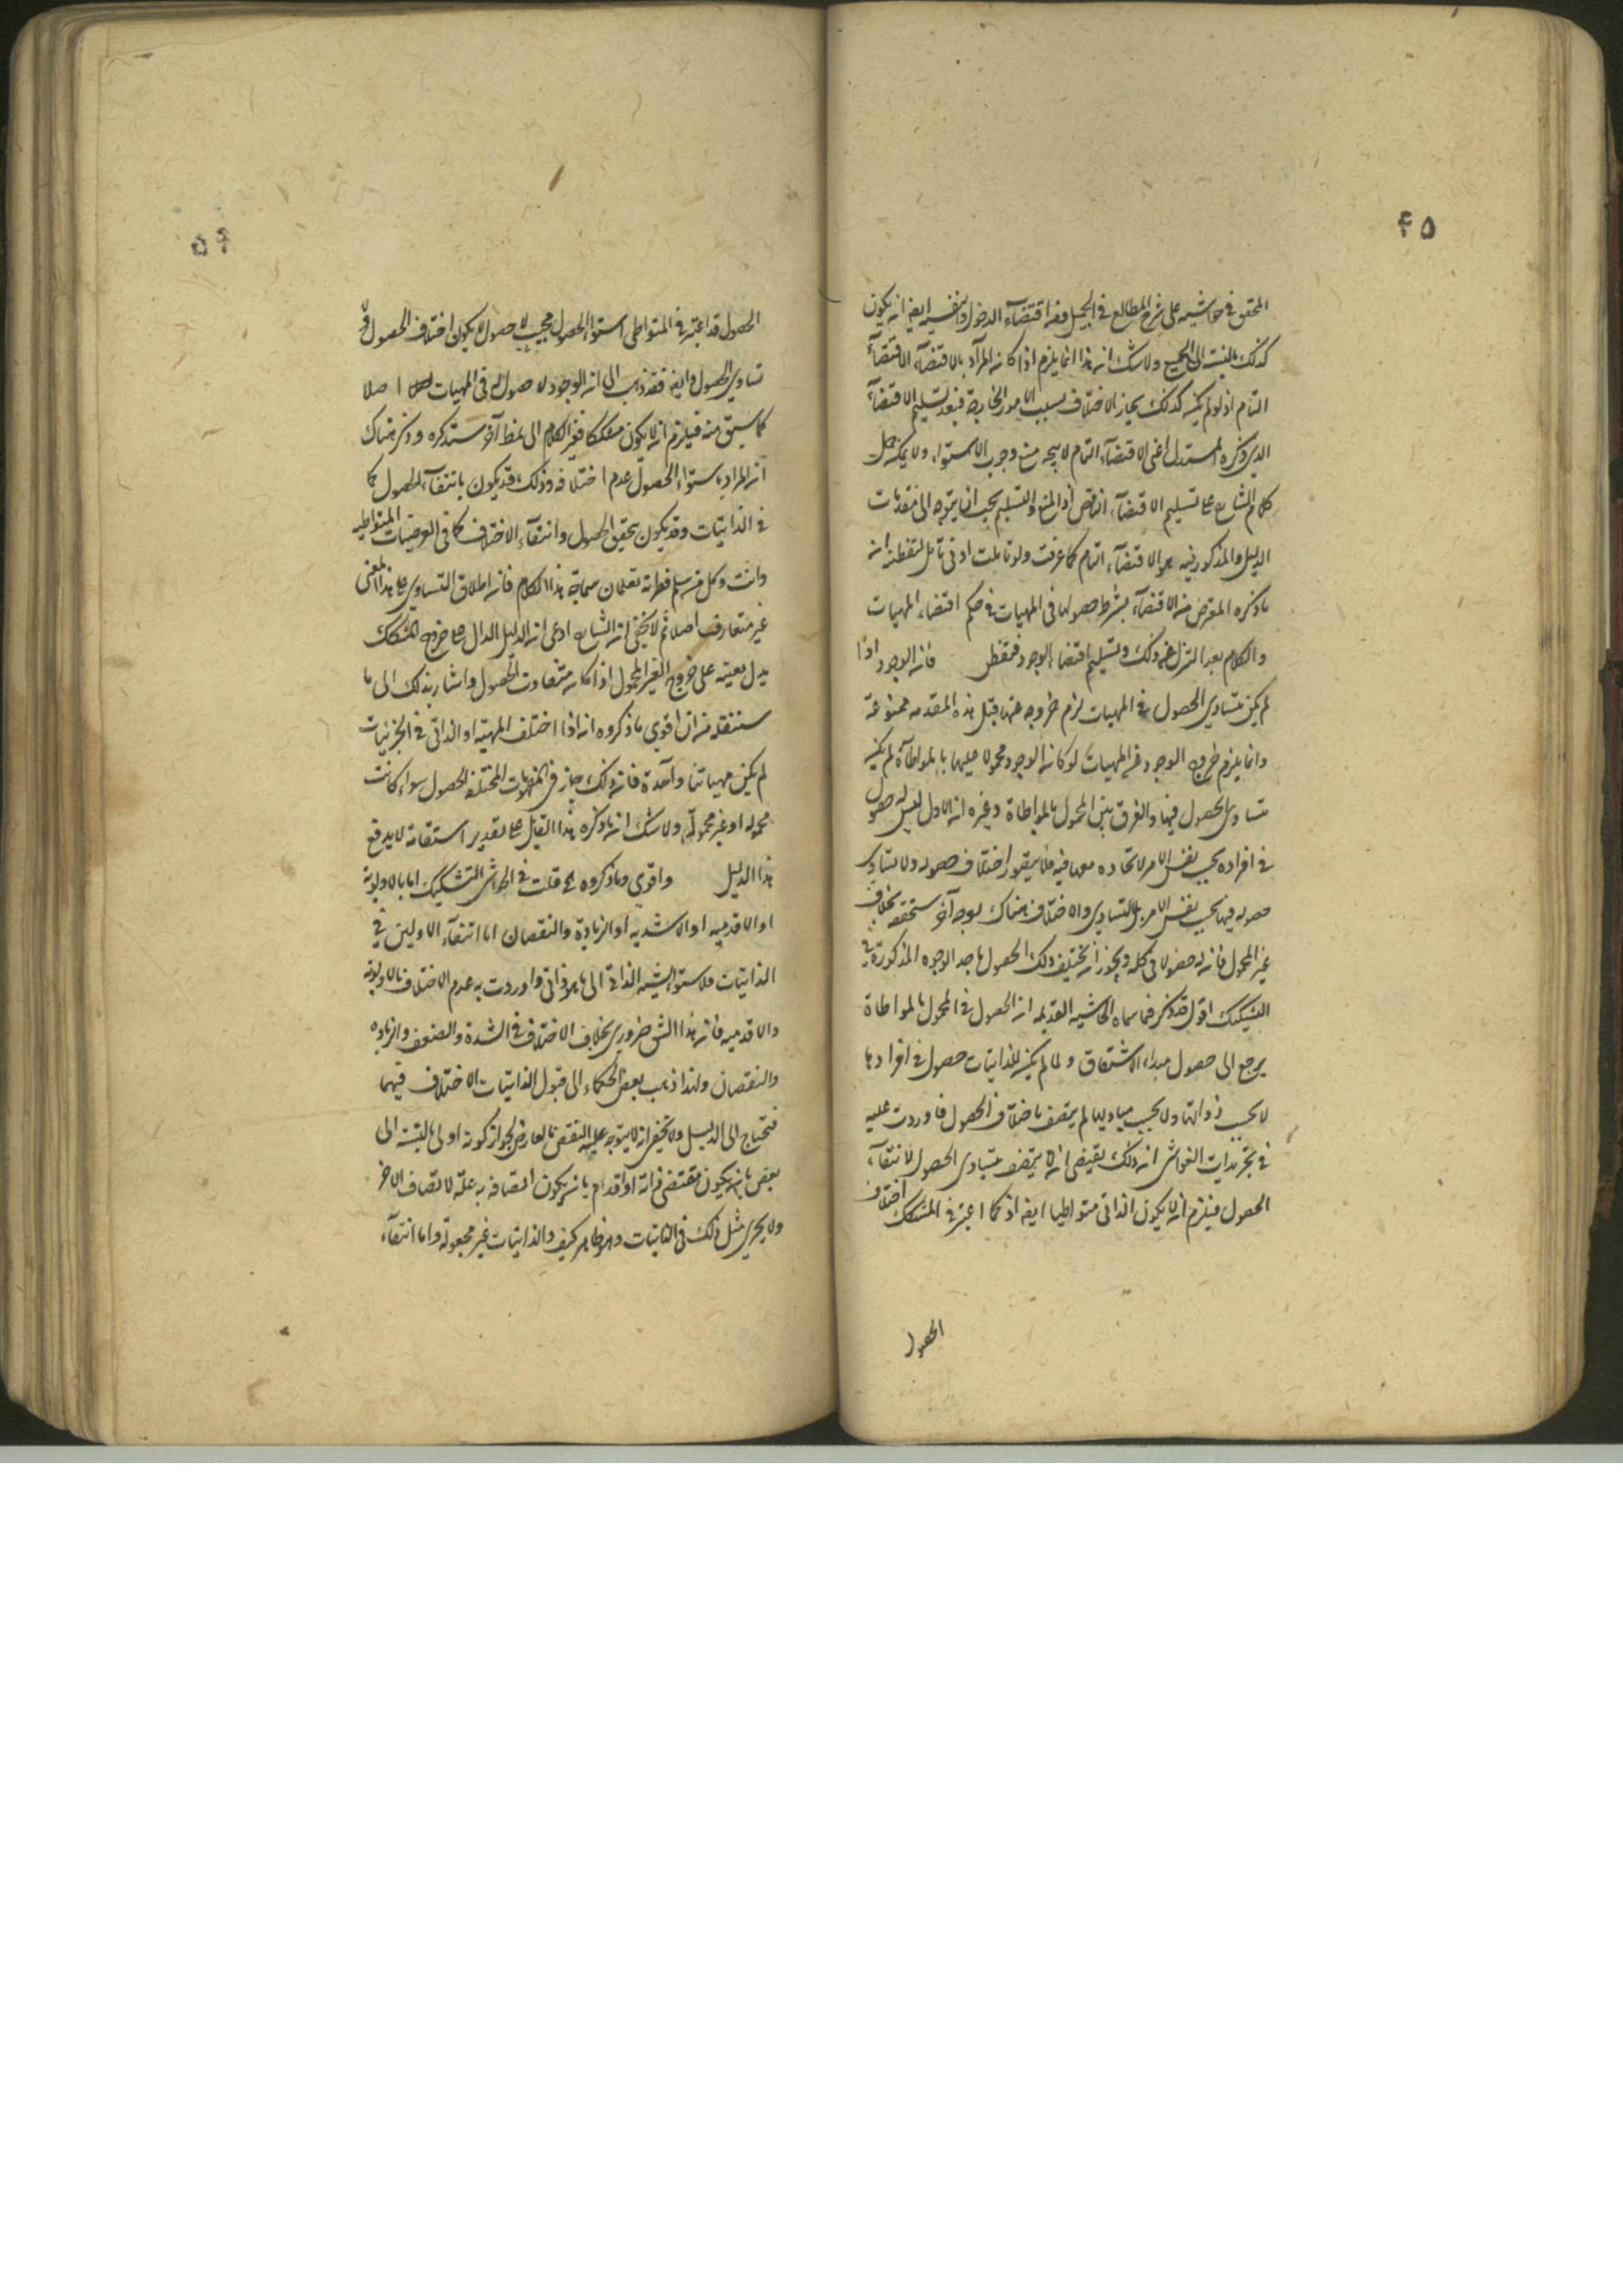 ٤٥
المحقق في حواشيه على شرح المطالع في الجعل وفه اقتضاء الدخول لنفسه ايضا ان يكون
كذلك بالنسبة الى الجميع ولا شك ان هذا انما يلزم اذا كان المراد بالاقتضاء الاقتضاء
التام اذ لو لم يكن كذلك يجاز الاختلاف بسبب الامور الخارجة فبعد تسليم الاقتضاء
الذي ذكره المستدل اعنى الاقتضاء التام لا يتجه منع وجوب الاستواء ولا يمكن حمل
كلام الشارح على تسليم الاقتضاء الناقص اذ المنع والتسليم يجب ان يتوجه الى مقدمات
الدليل والمذكور فيه هو الاقتضاء التام كما عرفت ولو تاملت ادنى تامل لتفطنت ان
ما ذكره المعترض من الاقتضاء بشرط حصولها في المهيات في حكم اقتضاء المهيات
والكلام بعد التنزل عن ذلك وتسليم اقتضاء الوجود فقط فان الوجود اذا
لم يكن متساوي الحصول في المهيات لزم خروجه عنها قيل هذه المقدمه ممنوعة
وانما يلزم خروج الوجود عن المهيات لو كان الوجود محمولا عليها بالمواطاة لم يكن
متساوي الحصول فيها والفرق بين المحمول بالمواطاة وغيره ان الاول ليس له حصول
في افراده بحسب نفس الامر لاتحاده معها فيه فلا يتصور اختلاف حصوله ولا تساوي
حصوله فيها بحسب نفس الامر بل التساوي والاختلاف هناك بوجه آخر ستحققه بخلاف
غير المحمول فان له حصولا في محله ويجوز ان يختلف ذلك الحصول باحد الوجوه المذكورة في
التشكيك اقول قد ذكر فيما سماه الحاشيه القديمه ان الحصول في المحمول بالمواطاة
يرجع الى حصول مبداء الاشتقاق ولما لم يكن للذاتيات حصول في افرادها
لا بحسب ذواتها ولا بحسب مباديها لم يتصف باختلاف الحصول فاوردت عليه
في تجريدات الغواشى ان ذلك يقتضي ان لا يتصف بتساوي الحصول لانتفاء
الحصول فيلزم ان لا يكون الذاتى متواطيا ايضا اذ كما اعتبر في المشكك اختلاف
الحصول
٤٦
الحصول قد اعتبر في المتواطى استواء الحصول فبحسب لا حصول لا يكون اختلاف الحصول ولا
تساوي الحصول وايضا فقد ذهب الى ان الوجود لا حصول له في المهيات اصلا
كما سبق منه فيلزم ان لا يكون مشككا فغير الكلام الى نمط آخر ستذكره وذكر هناك
ان المراد باستواء الحصول عدم اختلافه وذلك قد يكون بانتفاء الحصول كما
في الذاتيات وقد يكون بتحقق الحصول وانتفاء الاختلاف كما في العرضيات المتواطيه
وانت وكل من سلم فطرته تعلمان سماجة هذا الكلام فان اطلاق التساوي على هذا المعنى
غير متعارف اصلا ثم لا يخفى ان الشارح ادعى ان الدليل الدال على خروج المشكك
يدل بعينه على خروج الغير المحمول اذا كان متفاوت الحصول واشار بذلك الى ما
سننقله من ان اقوى ما ذكروه انه اذا اختلف المهية او الذاتى في الجزئيات
لم يكن مهياتنا واحدة فان ذلك جاز في المفهومات المختلفة الحصول سواء كانت
محمولة او غير محمولة ولا شك ان ما ذكره هذا القايل على تقدير استقامته لا يدفع
هذا الدليل واقوى ما ذكروه الخ قلت في الحواشى التشكيك اما بالاولوية
او الاقدميه او الاشديه او الزيادة والنقصان اما انتفاء الاولين في
الذاتيات فلاستواء نسبة الذاتى الى ما هو ذاتى واوردت به عدم الاختلاف بالاولويه
والاقدميه فان هذا الشق ضروري بخلاف الاختلاف في الشدة والضعف والزياده
والنقصان ولهذا ذهب بعض الحكماء الى قبول الذاتيات الاختلاف فيهما
فتحتاج الى الدليل ولا يخفى انه لا يتوجه عليه النقض بالعارض لجواز كونه اولى بالنسبة الى
بعض بان يكون مقتضى ذاته او اقدام بان يكون اتصافه به علة لاتصاف الاخر
ولا يجري مثل ذلك في الذاتيات وهو ظاهر كيف والذاتيات غير مجعولة واما انتفاء